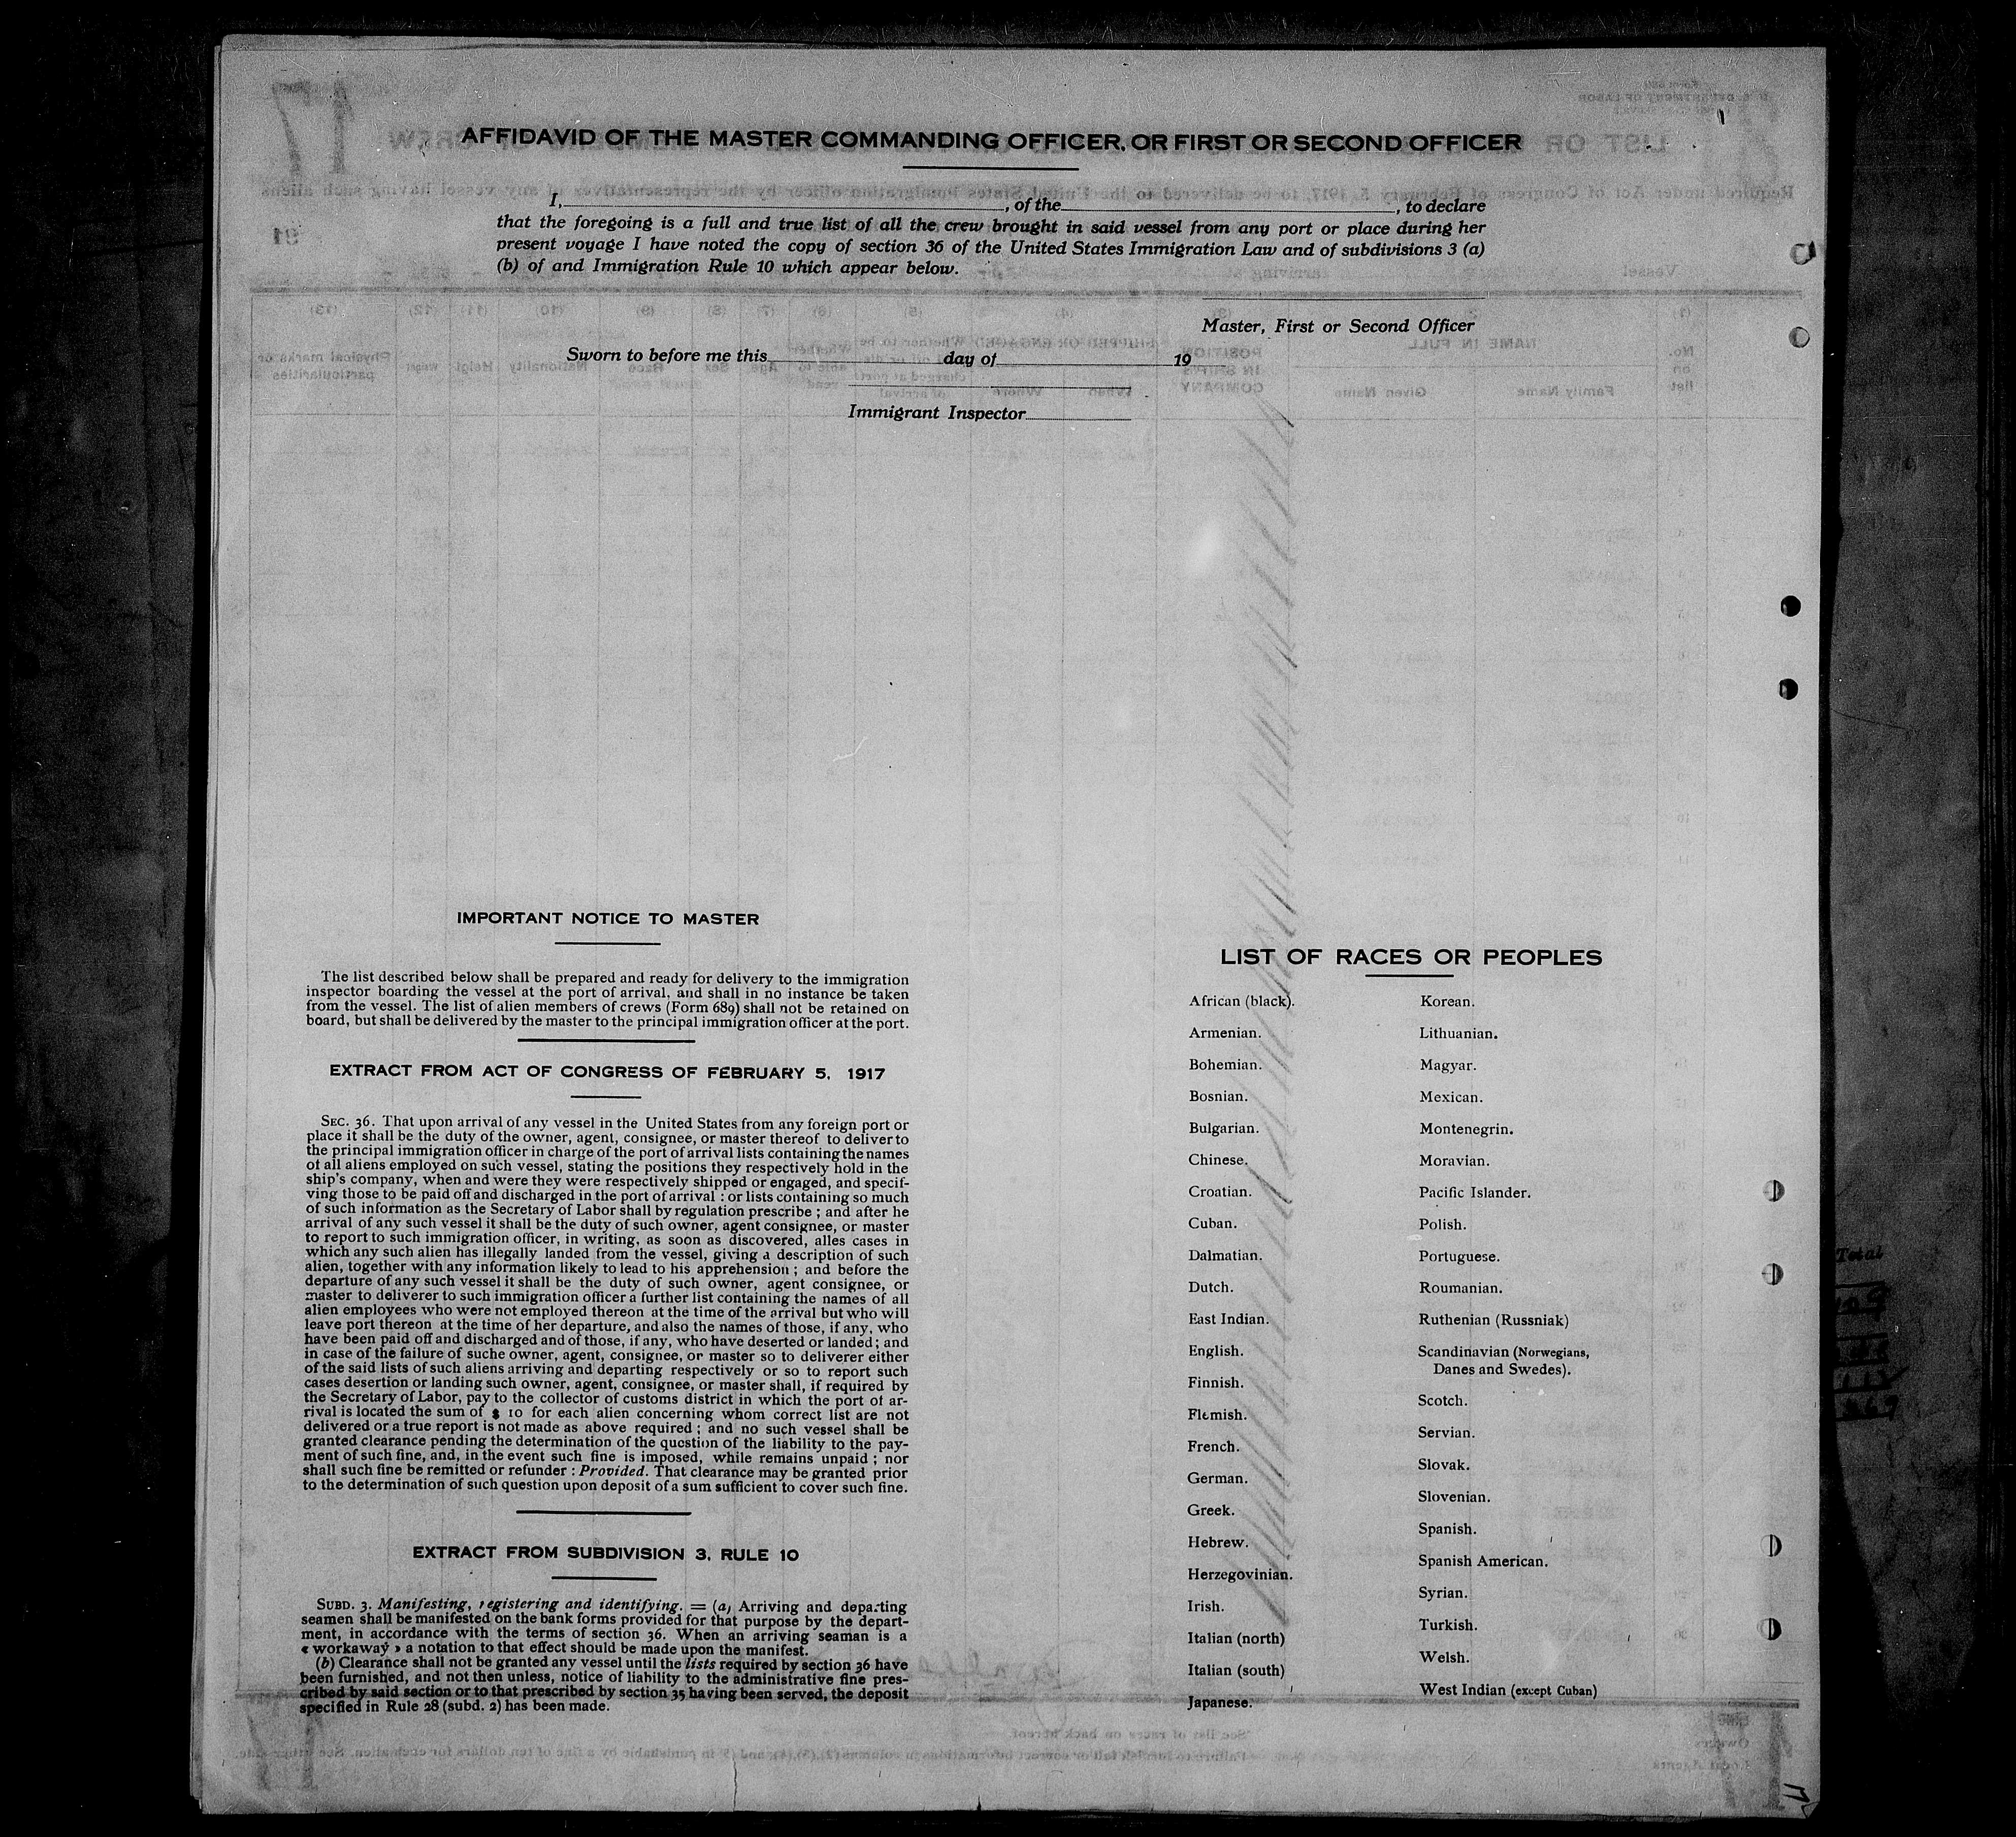 AFFIDAVID OF THE MASTER COMMANDING OFFICER, OR FIRST OR SECOND OFFICER
I, , of the , to declare
that the foregoing is a full and true list of all the crew brought in said vessel from any port or place during her
present voyage I have noted the copy of section 36 of the United States Immigration Law and of subdivisions 3 (a)
(b) of and Immigration Rule 10 which appear below.
Master, First or Second Officer
Sworn to before me this day of 19
Immigrant Inspector
IMPORTANT NOTICE TO MASTER
The list described below shall be prepared and ready for delivery to the immigration
inspector boarding the vessel at the port of arrival, and shall in no instance be taken
from the vessel. The list of alien members of crews (Form 689) shall not be retained on
board, but shall be delivered by the master to the principal immigration officer at the port.
EXTRACT FROM ACT OF CONGRESS OF FEBRUARY 5, 1917
SEC. 36. That upon arrival of any vessel in the United States from any foreign port or
place it shall be the duty of the owner, agent, consignee, or master thereof to deliver to
the principal immigration officer in charge of the port of arrival lists containing the names
of all aliens employed on such vessel, stating the positions they respectively hold in the
ship's company, when and were they were respectively shipped or engaged, and specif-
ving those to be paid off and discharged in the port of arrival : or lists containing so much
of such information as the Secretary of Labor shall by regulation prescribe ; and after he
arrival of any such vessel it shall be the duty of such owner, agent consignee, or master
to report to such immigration officer, in writing, as soon as discovered, alles cases in
which any such alien has illegally landed from the vessel, giving a description of such
alien, together with any information likely to lead to his apprehension ; and before the
departure of any such vessel it shall be the duty of such owner, agent consignee, or
master to deliverer to such immigration officer a further list containing the names of all
alien employees who were not employed thereon at the time of the arrival but who will
leave port thereon at the time of her departure, and also the names of those, if any, who
have been paid off and discharged and of those, if any, who have deserted or landed ; and
in case of the failure of suche owner, agent, consignee, or master so to deliverer either
of the said lists of such aliens arriving and departing respectively or so to report such
cases desertion or landing such owner, agent, consignee, or master shall, if required by
the Secretary of Labor, pay to the collector of customs district in which the port of ar-
rival is located the sum of $ 10 for each alien concerning whom correct list are not
delivered or a true report is not made as above required ; and no such vessel shall be
granted clearance pending the determination of the question of the liability to the pay-
ment of such fine, and, in the event such fine is imposed, while remains unpaid ; nor
shall such fine be remitted or refunder : Provided. That clearance may be granted prior
to the determination of such question upon deposit of a sum sufficient to cover such fine.
EXTRACT FROM SUBDIVISION 3, RULE 10
SUBD. 3. Manifesting, registering and identifying. = (a) Arriving and departing
seamen shall be manifested on the bank forms provided for that purpose by the depart-
ment, in accordance with the terms of section 36. When an arriving seaman is a
« workaway » a notation to that effect should be made upon the manifest.
(b) Clearance shall not be granted any vessel until the lists required by section 36 have
been furnished, and not then unless, notice of liability to the administrative fine pres-
cribed by said section or to that prescribed by section 35 having been served, the deposit
specified in Rule 28 (subd. 2) has been made.
LIST OF RACES OR PEOPLES
African (black).
Armenian.
Bohemian.
Bosnian.
Bulgarian.
Chinese.
Croatian.
Cuban.
Dalmatian.
Dutch.
East Indian.
English.
Finnish.
Flemish.
French.
German.
Greek.
Hebrew.
Herzegovinian.
Irish.
Italian (north)
Italian (south)
Japanese.
Korean.
Lithuanian.
Magyar.
Mexican.
Montenegrin.
Moravian.
Pacific Islander.
Polish.
Portuguese.
Roumanian.
Ruthenian (Russniak)
Scandinavian (Norwegians,
Danes and Swedes).
Scotch.
Servian.
Slovak.
Slovenian.
Spanish.
Spanish American.
Syrian.
Turkish.
Welsh.
West Indian (except Cuban)
Total
17